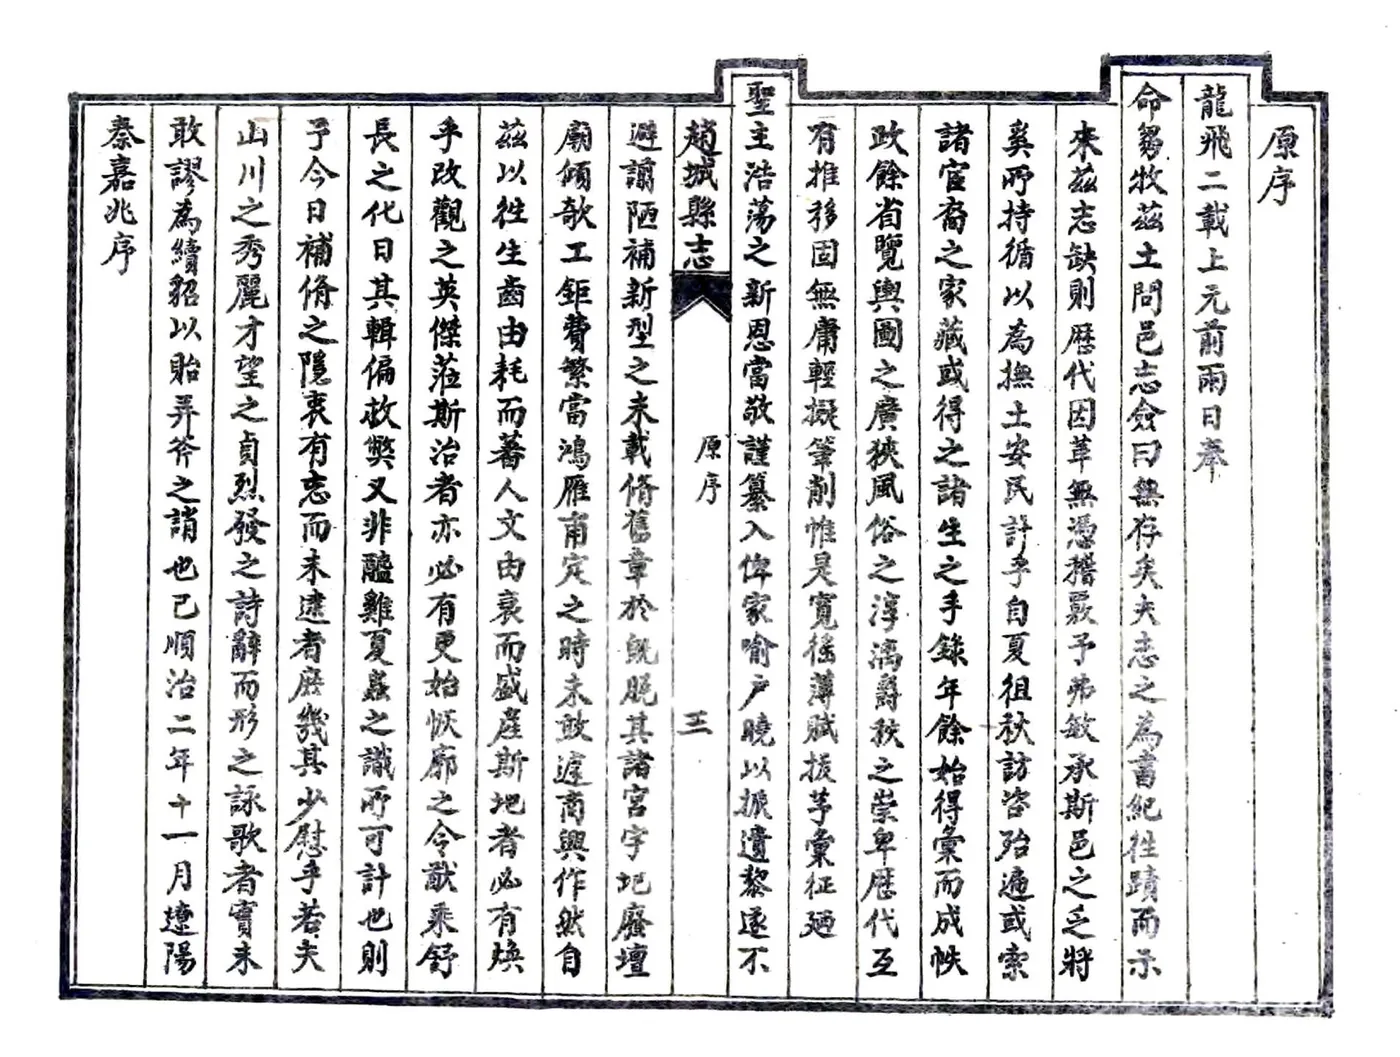 原序
龍飛二載上元前兩日奉
命芻牧茲土問邑志僉曰無存矣夫志之為書紀徃蹟而示
來茲志缺則歷代因革無憑稽覈予弗敏承斯邑之乏將
奚所持循以為撫土安民計乎自夏徂秋訪咨殆遍或索
諸宦裔之家藏或得之諸生之手錄年餘始得彙而成帙
政餘省覽輿圖之廣狹風俗之淳漓爵秩之崇卑歷代互
有推移固無庸輕擬筆削惟是寬徭薄賦拔茅彙征廼
聖主浩蕩之新恩當敬謹纂入俾家喻戶曉以振遺黎遂不
趙城縣志
原序
三
避謭陋補新型之未載脩舊章於既脫其諸宮宇圯廢壇
廟傾欹工鉅費繁當鴻雁甫定之時未敢遽商興作然自
茲以徃生齒由耗而蕃人文由衰而盛產斯地者必有煥
乎改觀之英傑蒞斯治者亦必有更始恢廓之令猷乘舒
長之化日其輯偏救獘又非醯雞夏蟲之識所可計也則
予今日補脩之隱衷有志而未逮者庶幾其少慰乎若夫
山川之秀麗才望之貞烈發之詩辭而形之詠歌者實未
敢謬為續貂以貽弄斧之誚也已順治二年十一月遼陽
秦嘉兆序